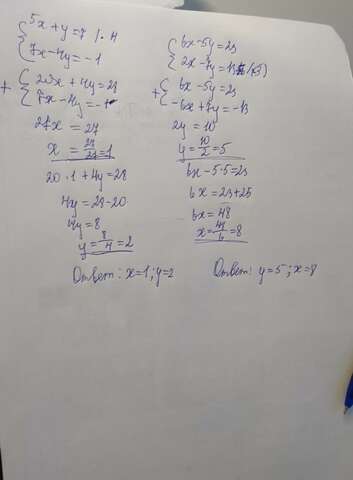 5x + y = 7 | · 4
7x - 4y = -1
+ 20x + 4y = 28
7x - 4y = -1
27x = 27
x = 27/27 = 1
20 · 1 + 4y = 28
4y = 28 - 20
4y = 8
y = 8/4 = 2
Ответ: x=1; y=2
6x - 5y = 23
+ 6x - 5y = 23
-6x + 7y = -13
2y = 10
y = 10/2 = 5
6x - 5·5 = 23
6x = 23 + 25
6x = 48
x = 48/6 = 8
Ответ: y=5; x=8